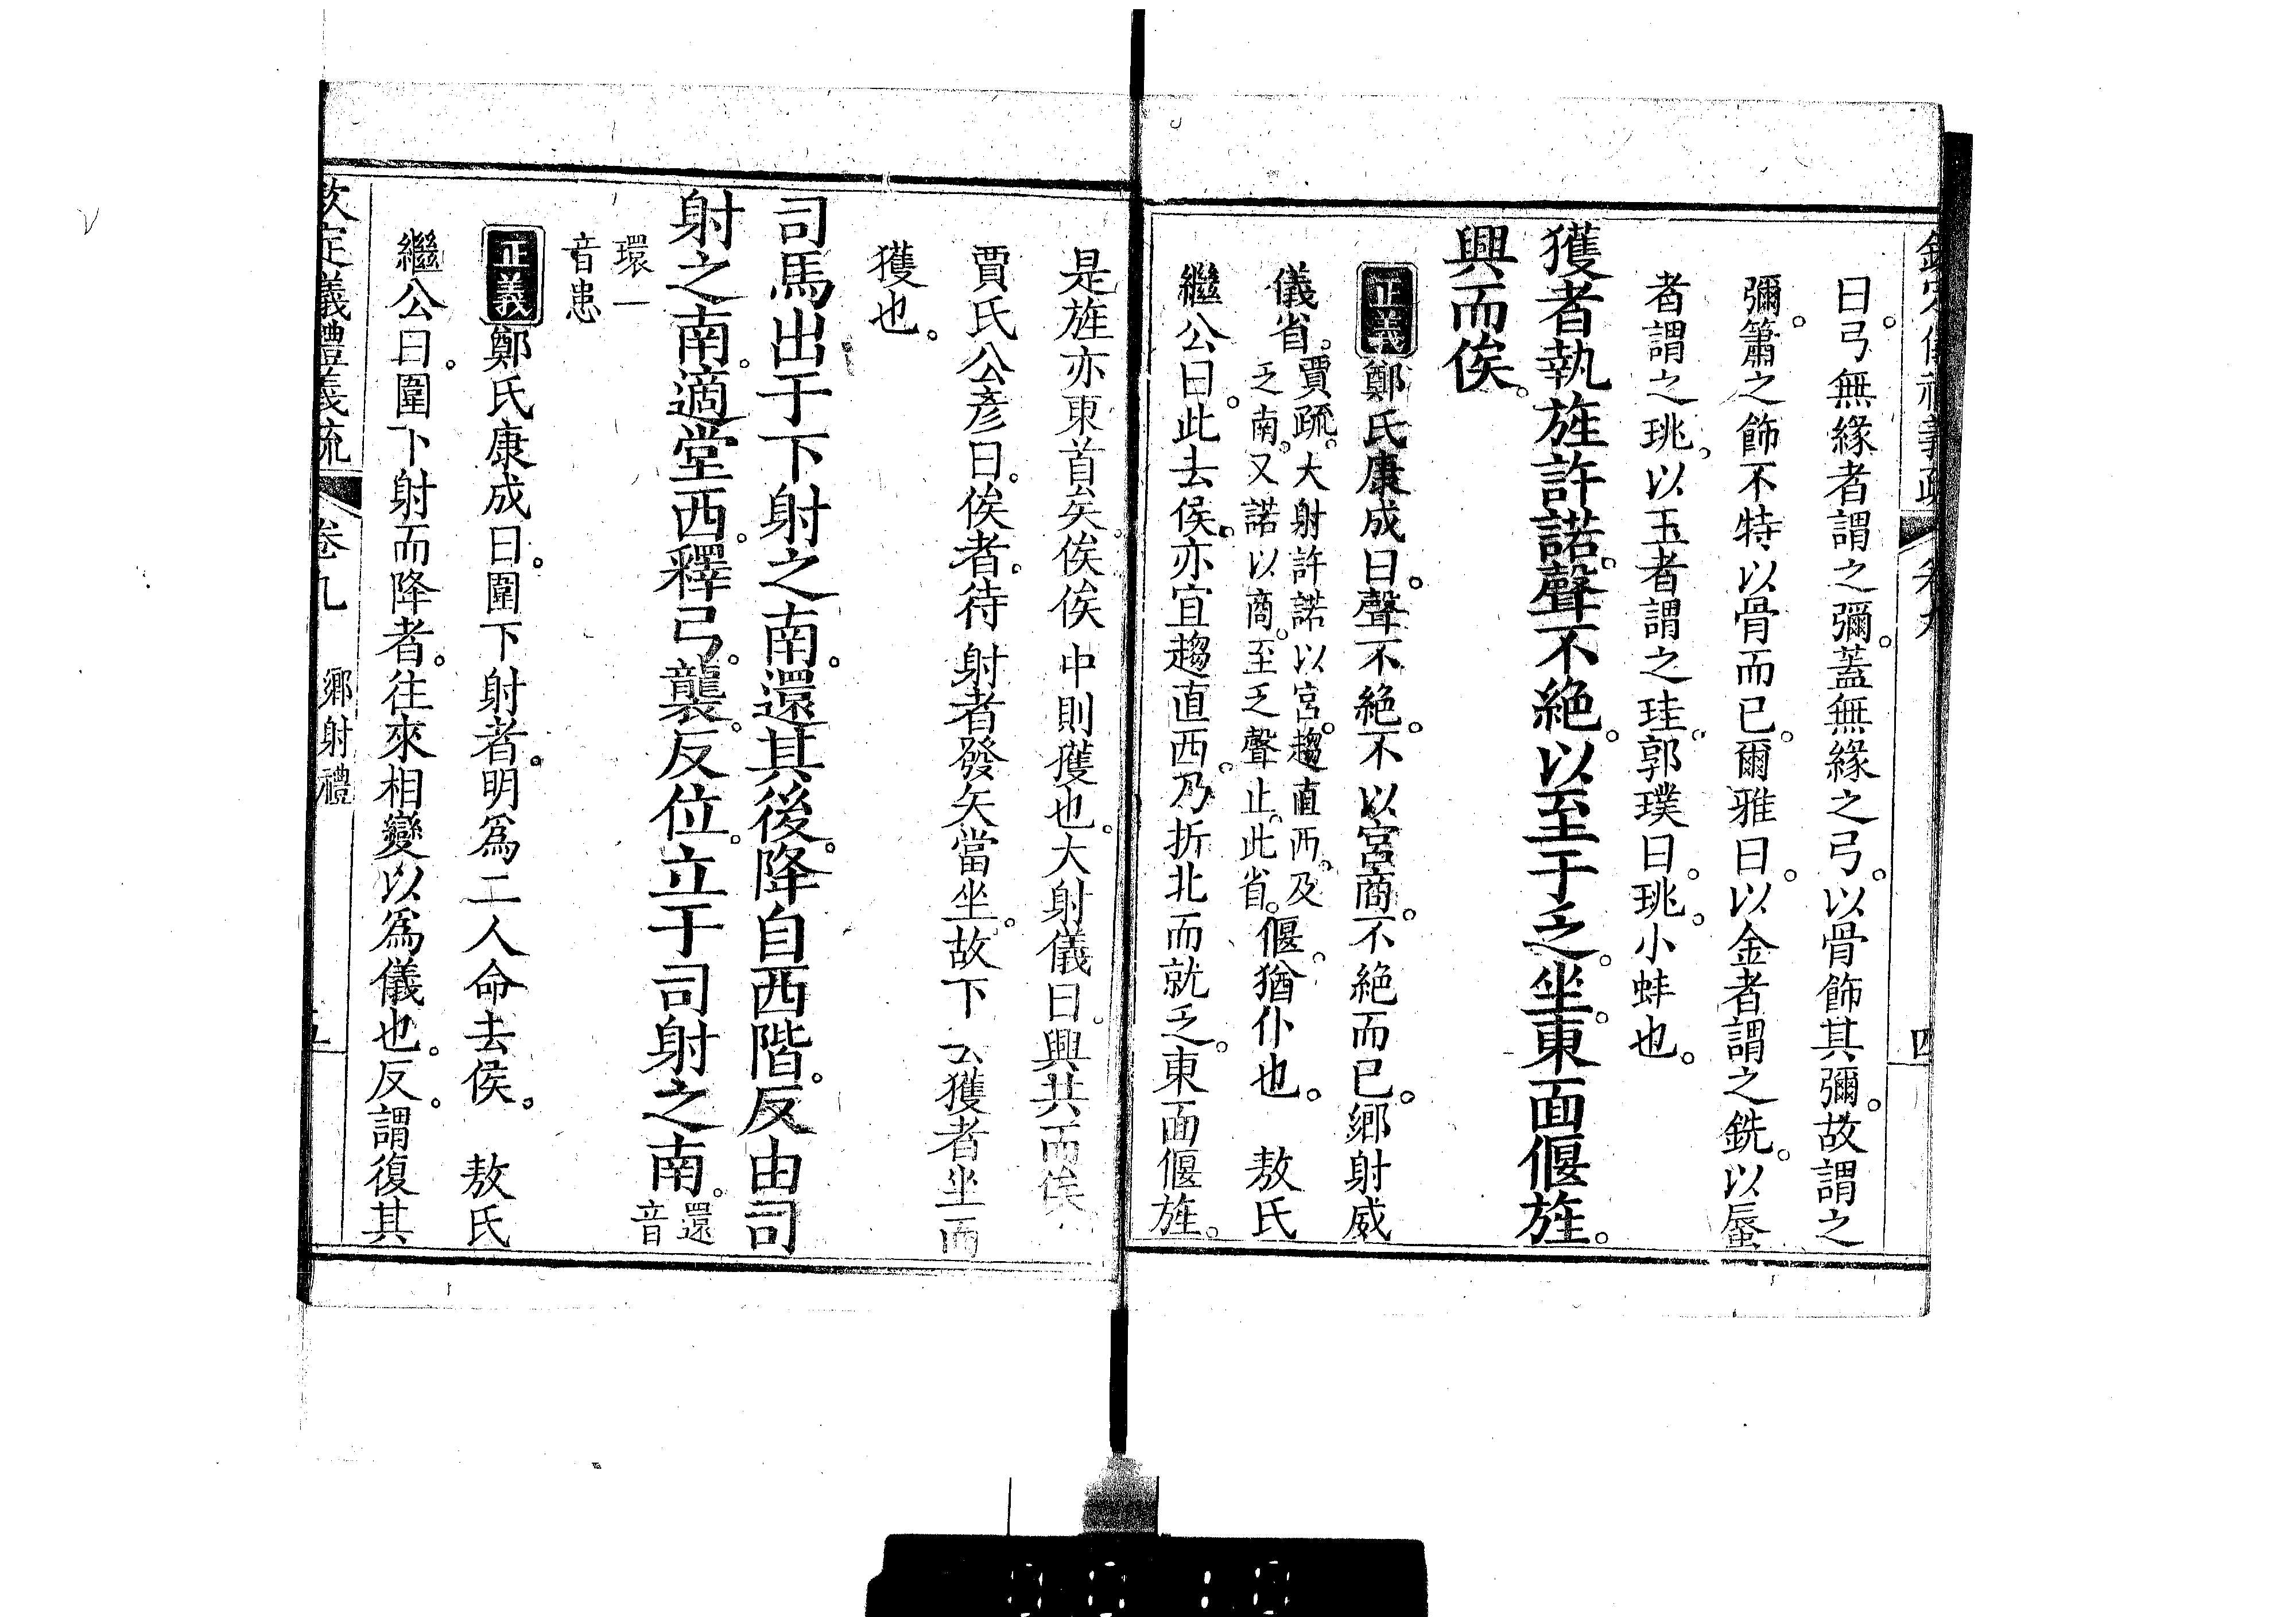 曰。弓無緣者謂之彌。蓋無緣之弓。以骨飾其彌。故謂之
彌。簫之飾不特以骨而已。爾雅曰。以金者謂之銑。以蜃
者謂之珧。以玉者謂之珪。郭璞曰。珧。小蚌也。
獲者執旌許諾。聲不絕。以至于乏。坐。東面偃旌。
興而俟。
正義鄭氏康成曰。聲不絕。不以宮商。不絕而已。鄉射威
儀省。賈疏。大射許諾以宮。趨直西。及乏南。又諾以商。至乏聲止。此省。偃。猶仆也。 敖氏
繼公曰。此去侯。亦宜趨直西。乃折北而就乏。東面偃旌。
是旌亦東首矣。俟。俟中則獲也。大射儀曰。興共而俟。
賈氏公彥曰。俟者。待射者發矢當坐。故下云獲者坐而
獲也。
司馬出于下射之南。還其後。降自西階。反由司
射之南。適堂西。釋弓。襲。反位。立于司射之南。還音
環一音患
正義鄭氏康成曰。圍下射者。明爲二人命去侯。 敖氏
繼公曰。圍下射而降者。往來相變以爲儀也。反。謂復其
欽定儀禮義疏 卷九 鄉射禮 五